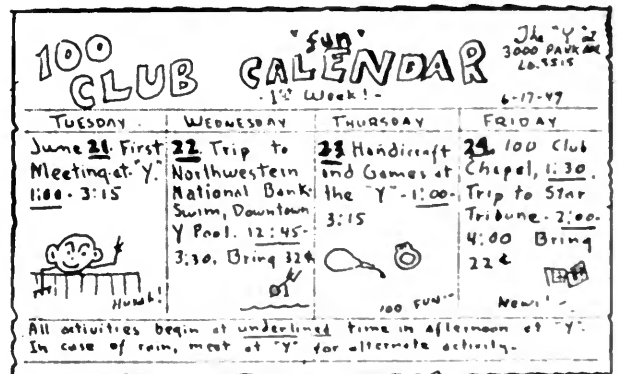 100 CLUB "fun" CALENDAR
- 1st Week! -
The "Y" at
3000 PARK AVE
LO.5515
6-17-49
TUESDAY
June 21. First
Meeting at "Y."
1:00 - 3:15
Humh!
WEDNESDAY
22. Trip to
Northwestern
National Bank.
Swim, Downtown
Y Pool. 12:45-
3:30. Bring 32¢
THURSDAY
23 Handicraft
and Games at
the "Y" - 1:00-
3:15
100 FUN
FRIDAY
24. 100 Club
Chapel, 1:30.
Trip to Star
Tribune - 2:00-
4:00 Bring
22¢
News!
All activities begin at underlined time in afternoon at "Y".
In case of rain, meet at "Y" for alternate activity.